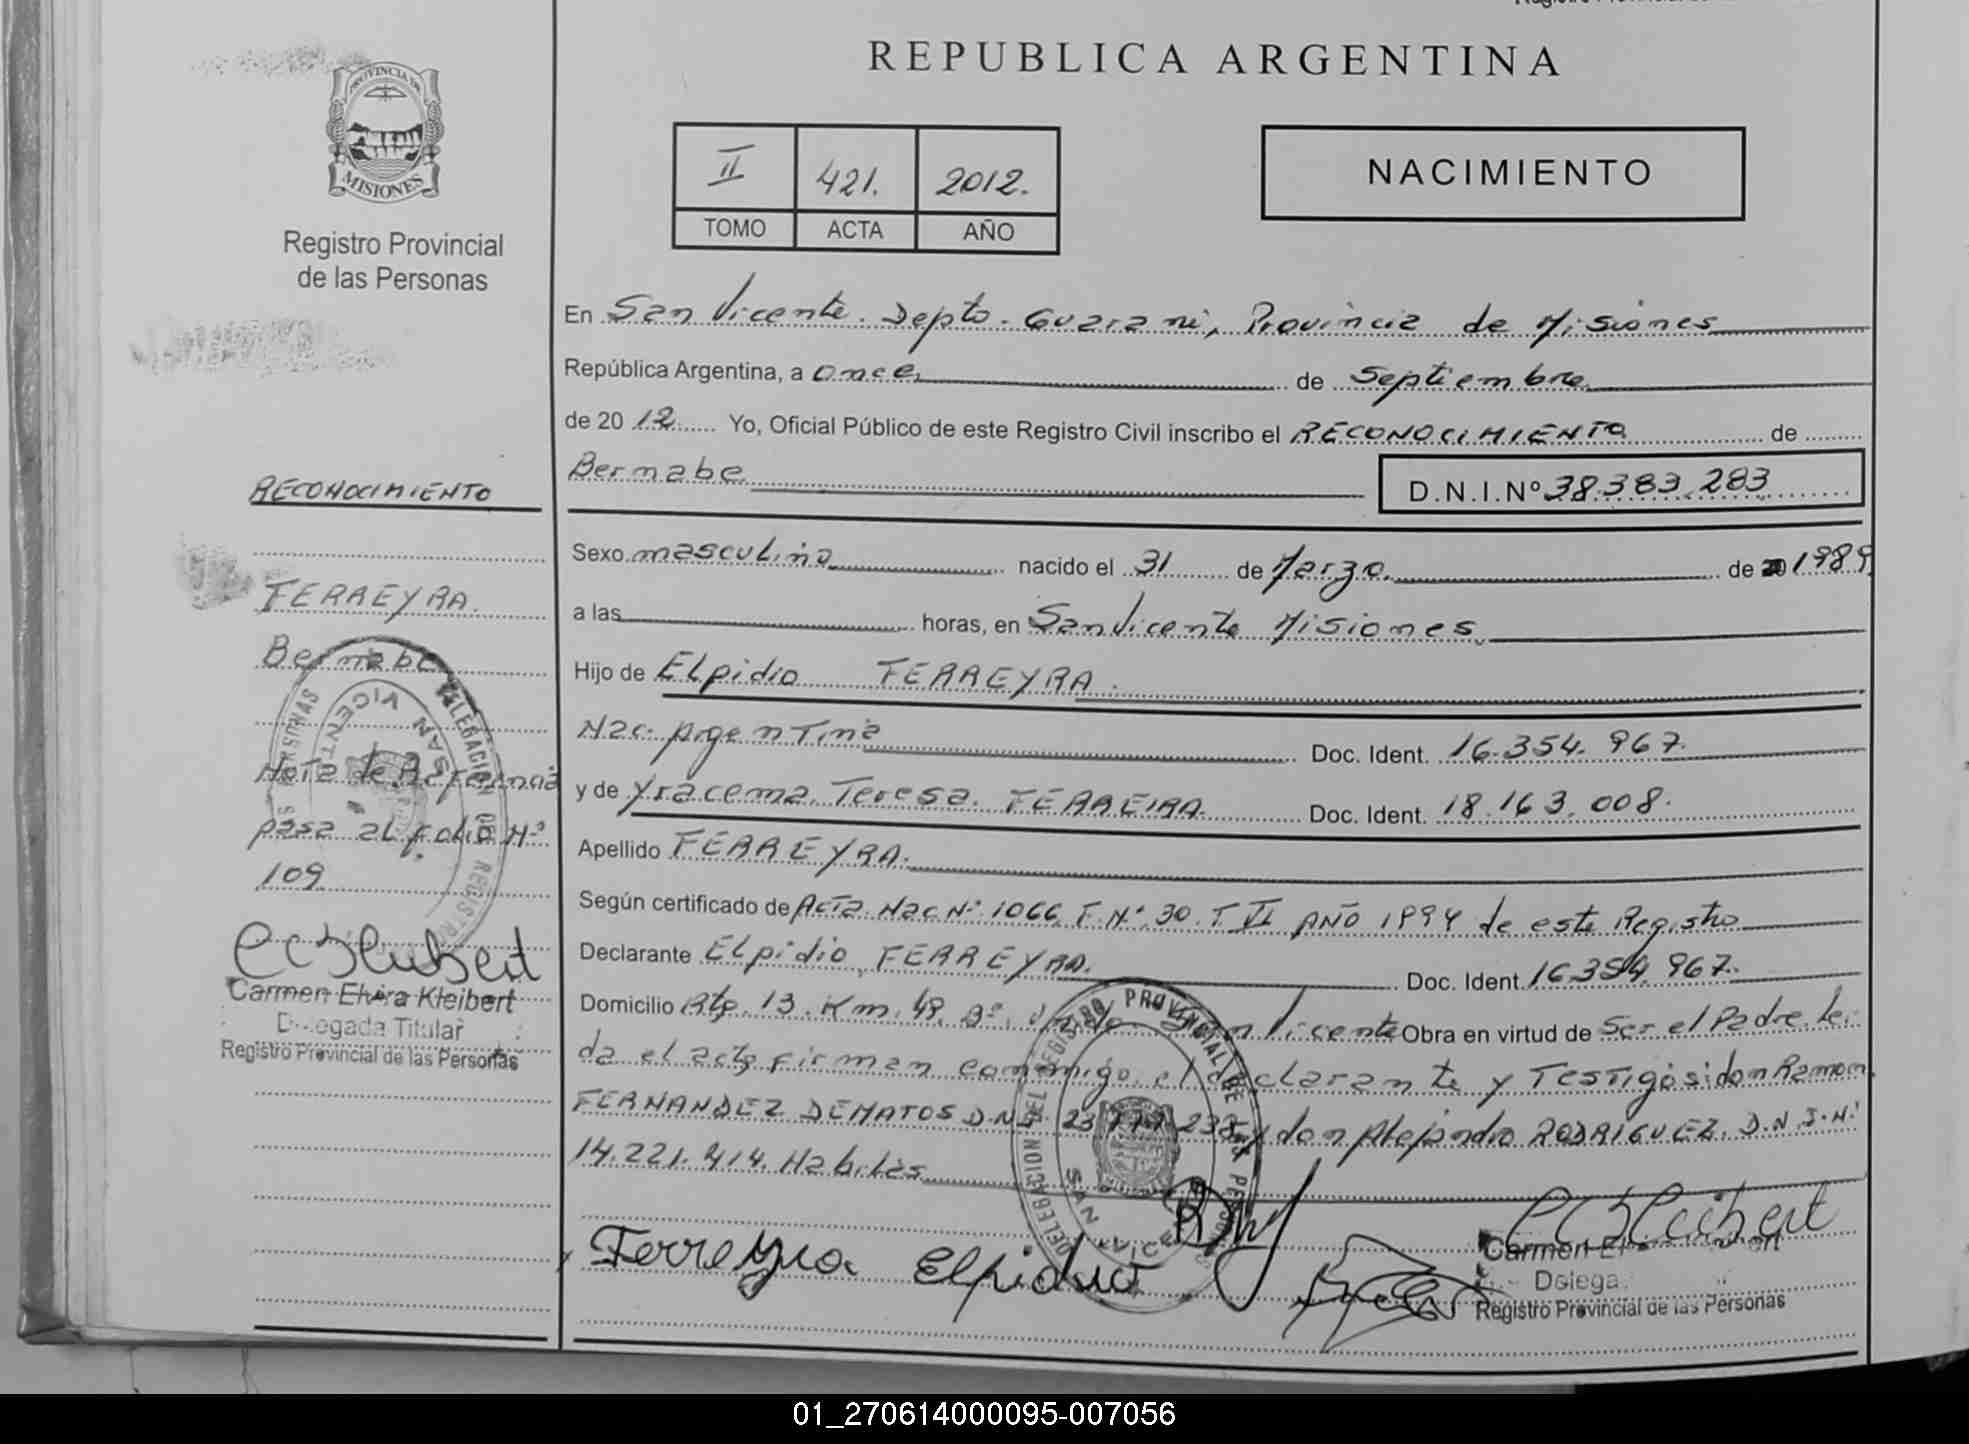 REPUBLICA ARGENTINA
PROVINCIA DE
MISIONES
Registro Provincial
de las Personas
II 421. 2012.
TOMO ACTA AÑO
NACIMIENTO
En San Vicente. Depto. Guarani, Provincia de Misiones
República Argentina, a once, de Septiembre
de 20 12 Yo, Oficial Público de este Registro Civil inscribo el RECONOCIMIENTO de
Bernabe D.N.I.Nº 38.383.283
Sexo masculino nacido el 31 de Marzo. de 20 1989
a las horas, en San Vicente Misiones.
Hijo de Elpidio FERREYRA.
Nac. Argentina Doc. Ident. 16.354.967.
y de Yracema Teresa FERREIRA. Doc. Ident. 18.163.008.
Apellido FERREYRA.
Según certificado de Acta Nac Nº 1066 F.Nº 30 T VI AÑO 1994 de este Registro
Declarante Elpidio FERREYRA. Doc. Ident 16.354.967.
Domicilio Rta 13 Km. 48 Bº Vicente Obra en virtud de Ser el Padre lei
da el acta firman conmigo el declarante y Testigos: don Ramon
FERNANDEZ DEMATOS D.N.I. 23 y don Alejandro RODRIGUEZ. D.N.I.Nº
14.221.414. Habiles
Ferreyra Elpidio
CEKleibert
Carmen El
Delega
Registro Provincial de las Personas
DELEGACION DEL REGISTRO PROVINCIAL DE LAS PERSONAS
SAN VICENTE
RECONOCIMIENTO
FERREYRA.
Bernabe
Nota de Referencia
pasa al folio Nº
109
CEKleibert
Carmen Elvira Kleibert
Delegada Titular
Registro Provincial de las Personas
DELEGACION DEL REGISTRO PERSONAS
SAN VICENTE
01_270614000095-007056